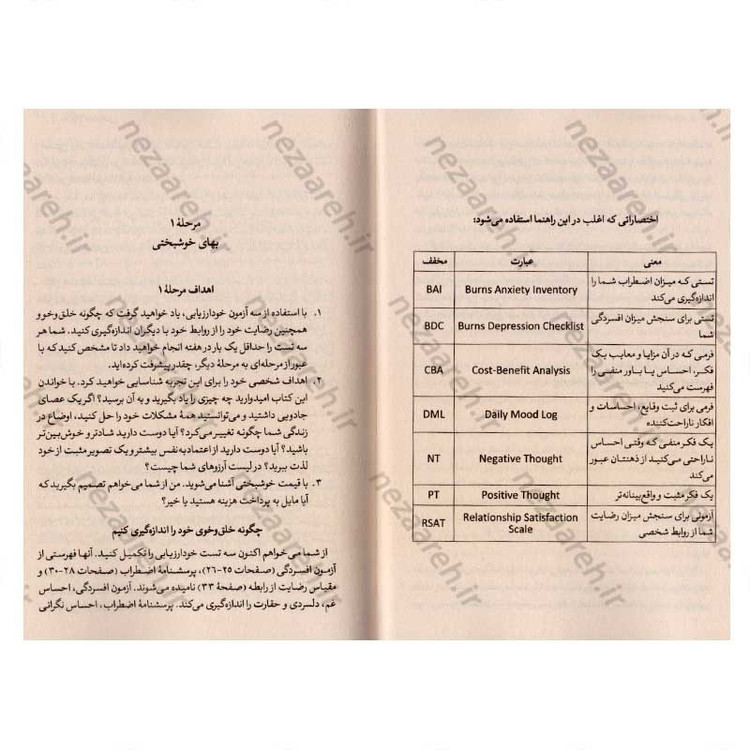 اختصاراتی که اغلب در این راهنما استفاده می‌شود:
معنی عبارت مخفف
تستی که میزان اضطراب شما را Burns Anxiety Inventory BAI
اندازه‌گیری می‌کند
تستی برای سنجش میزان افسردگی Burns Depression Checklist BDC
شما
فرمی که در آن مزایا و معایب یک
فکر، احساس یا باور منفی را Cost-Benefit Analysis CBA
فهرست می‌کنید
فرمی برای ثبت وقایع، احساسات و Daily Mood Log DML
افکار ناراحت‌کننده
یک فکر منفی که وقتی احساس
ناراحتی می‌کنید از ذهنتان عبور Negative Thought NT
می‌کند
یک فکر مثبت و واقع‌بینانه‌تر Positive Thought PT
آزمونی برای سنجش میزان رضایت Relationship Satisfaction RSAT
شما از روابط شخصی Scale
مرحلهٔ ۱
بهای خوشبختی
اهداف مرحلهٔ ۱
۱. با استفاده از سه آزمون خودارزیابی، یاد خواهید گرفت که چگونه خلق‌وخو و
همچنین رضایت خود را از روابط خود با دیگران اندازه‌گیری کنید. شما هر
سه تست را حداقل یک بار در هفته انجام خواهید داد تا مشخص کنید که با
عبور از مرحله‌ای به مرحلهٔ دیگر، چقدر پیشرفت کرده‌اید.
۲. اهداف شخصی خود را برای این تجربه شناسایی خواهید کرد. با خواندن
این کتاب امیدوارید چه چیزی را یاد بگیرید و به آن برسید؟ اگر یک عصای
جادویی داشتید و می‌توانستید همهٔ مشکلات خود را حل کنید، اوضاع در
زندگی شما چگونه تغییر می‌کرد؟ آیا دوست دارید شادتر و خوش‌بین‌تر
باشید؟ آیا دوست دارید از اعتمادبه‌نفس بیشتر و یک تصویر مثبت از خود
لذت ببرید؟ در لیست آرزوهای شما چیست؟
۳. با قیمت خوشبختی آشنا می‌شوید. من از شما می‌خواهم تصمیم بگیرید که
آیا مایل به پرداخت هزینه هستید یا خیر؟
چگونه خلق‌وخوی خود را اندازه‌گیری کنیم
از شما می‌خواهم اکنون سه تست خودارزیابی را تکمیل کنید. آنها فهرستی از
آزمون افسردگی (صفحات ۲۵-۲۶)، پرسشنامهٔ اضطراب (صفحات ۲۸-۳۰) و
مقیاس رضایت از رابطه (صفحهٔ ۳۳) نامیده می‌شوند. آزمون افسردگی، احساس
غم، دلسردی و حقارت را اندازه‌گیری می‌کند. پرسشنامهٔ اضطراب، احساس نگرانی
nezaareh.ir